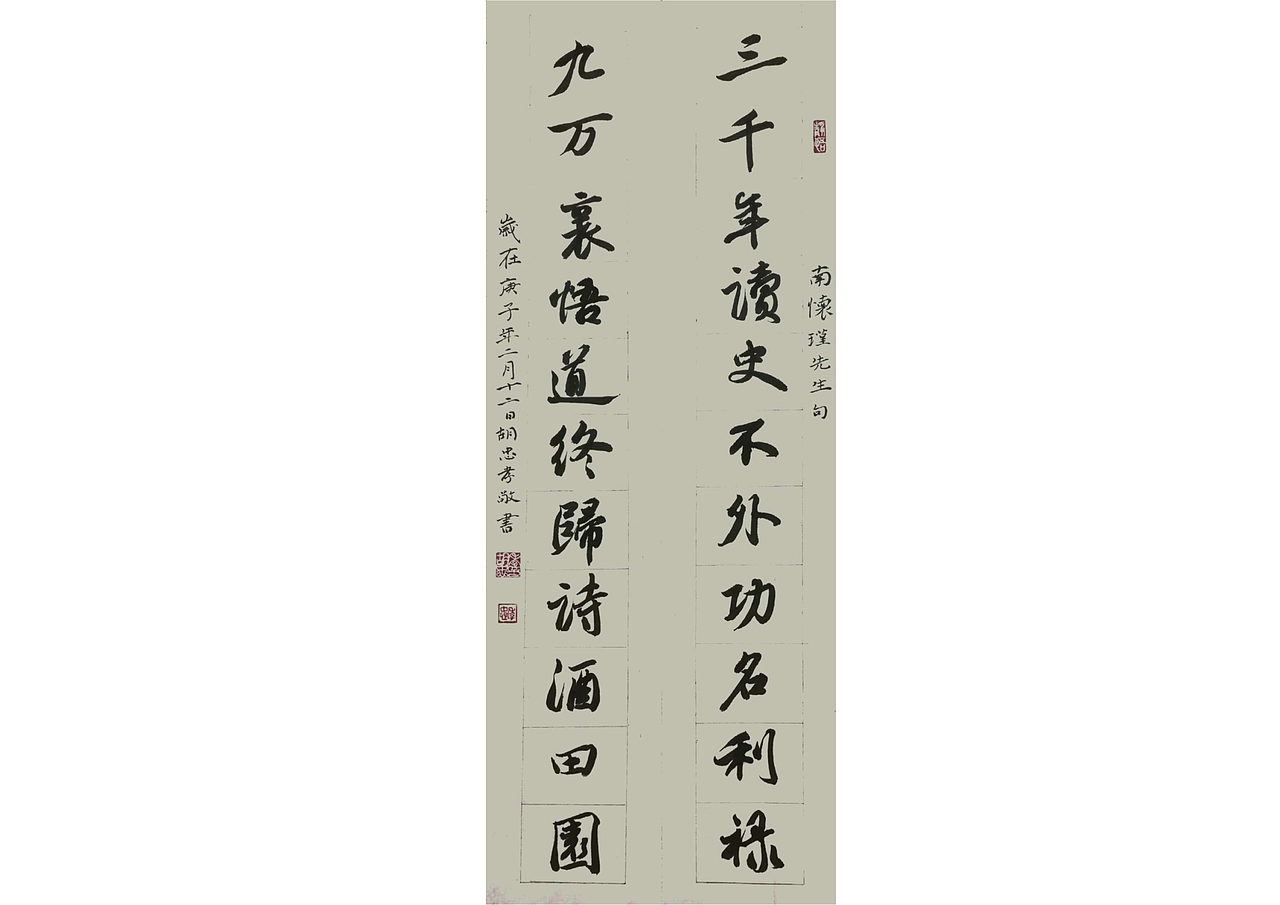 南懷瑾先生句
三千年讀史不外功名利禄
九万裏悟道終歸詩酒田園
歲在庚子年二月十二日胡忠孝敬書